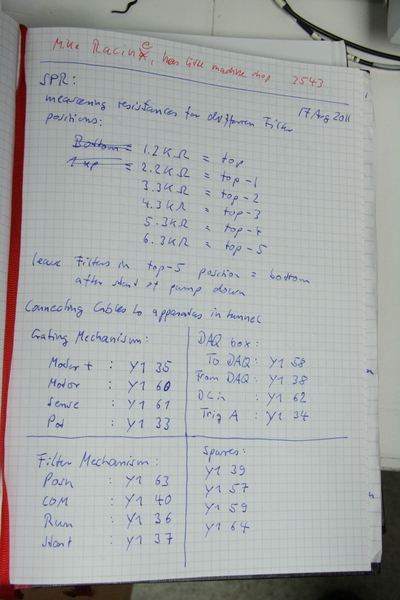 Mike Racine, has little machine shop 2543
SPR: 17 Aug 2011
measuring resistances for different Filter
positions:
Bottom = 1.2 KΩ = top
1 up = 2.2 KΩ = top-1
3.3 KΩ = top-2
4.3 KΩ = top-3
5.3 KΩ = top-4
6.3 KΩ = top-5
leave Filters in top-5 position = bottom
after start of pump down
Connecting Cables to apparatus in tunnel
Grating Mechanism:
Motor + : Y1 35
Motor : Y1 60
Sense : Y1 61
Pot : Y1 33
DAQ box:
To DAQ: Y1 58
From DAQ: Y1 38
DC in : Y1 62
Trig A : Y1 34
Filter Mechanism:
Posn : Y1 63
COM : Y1 40
Run : Y1 36
Start : Y1 37
Spares:
Y1 39
Y1 57
Y1 59
Y1 64